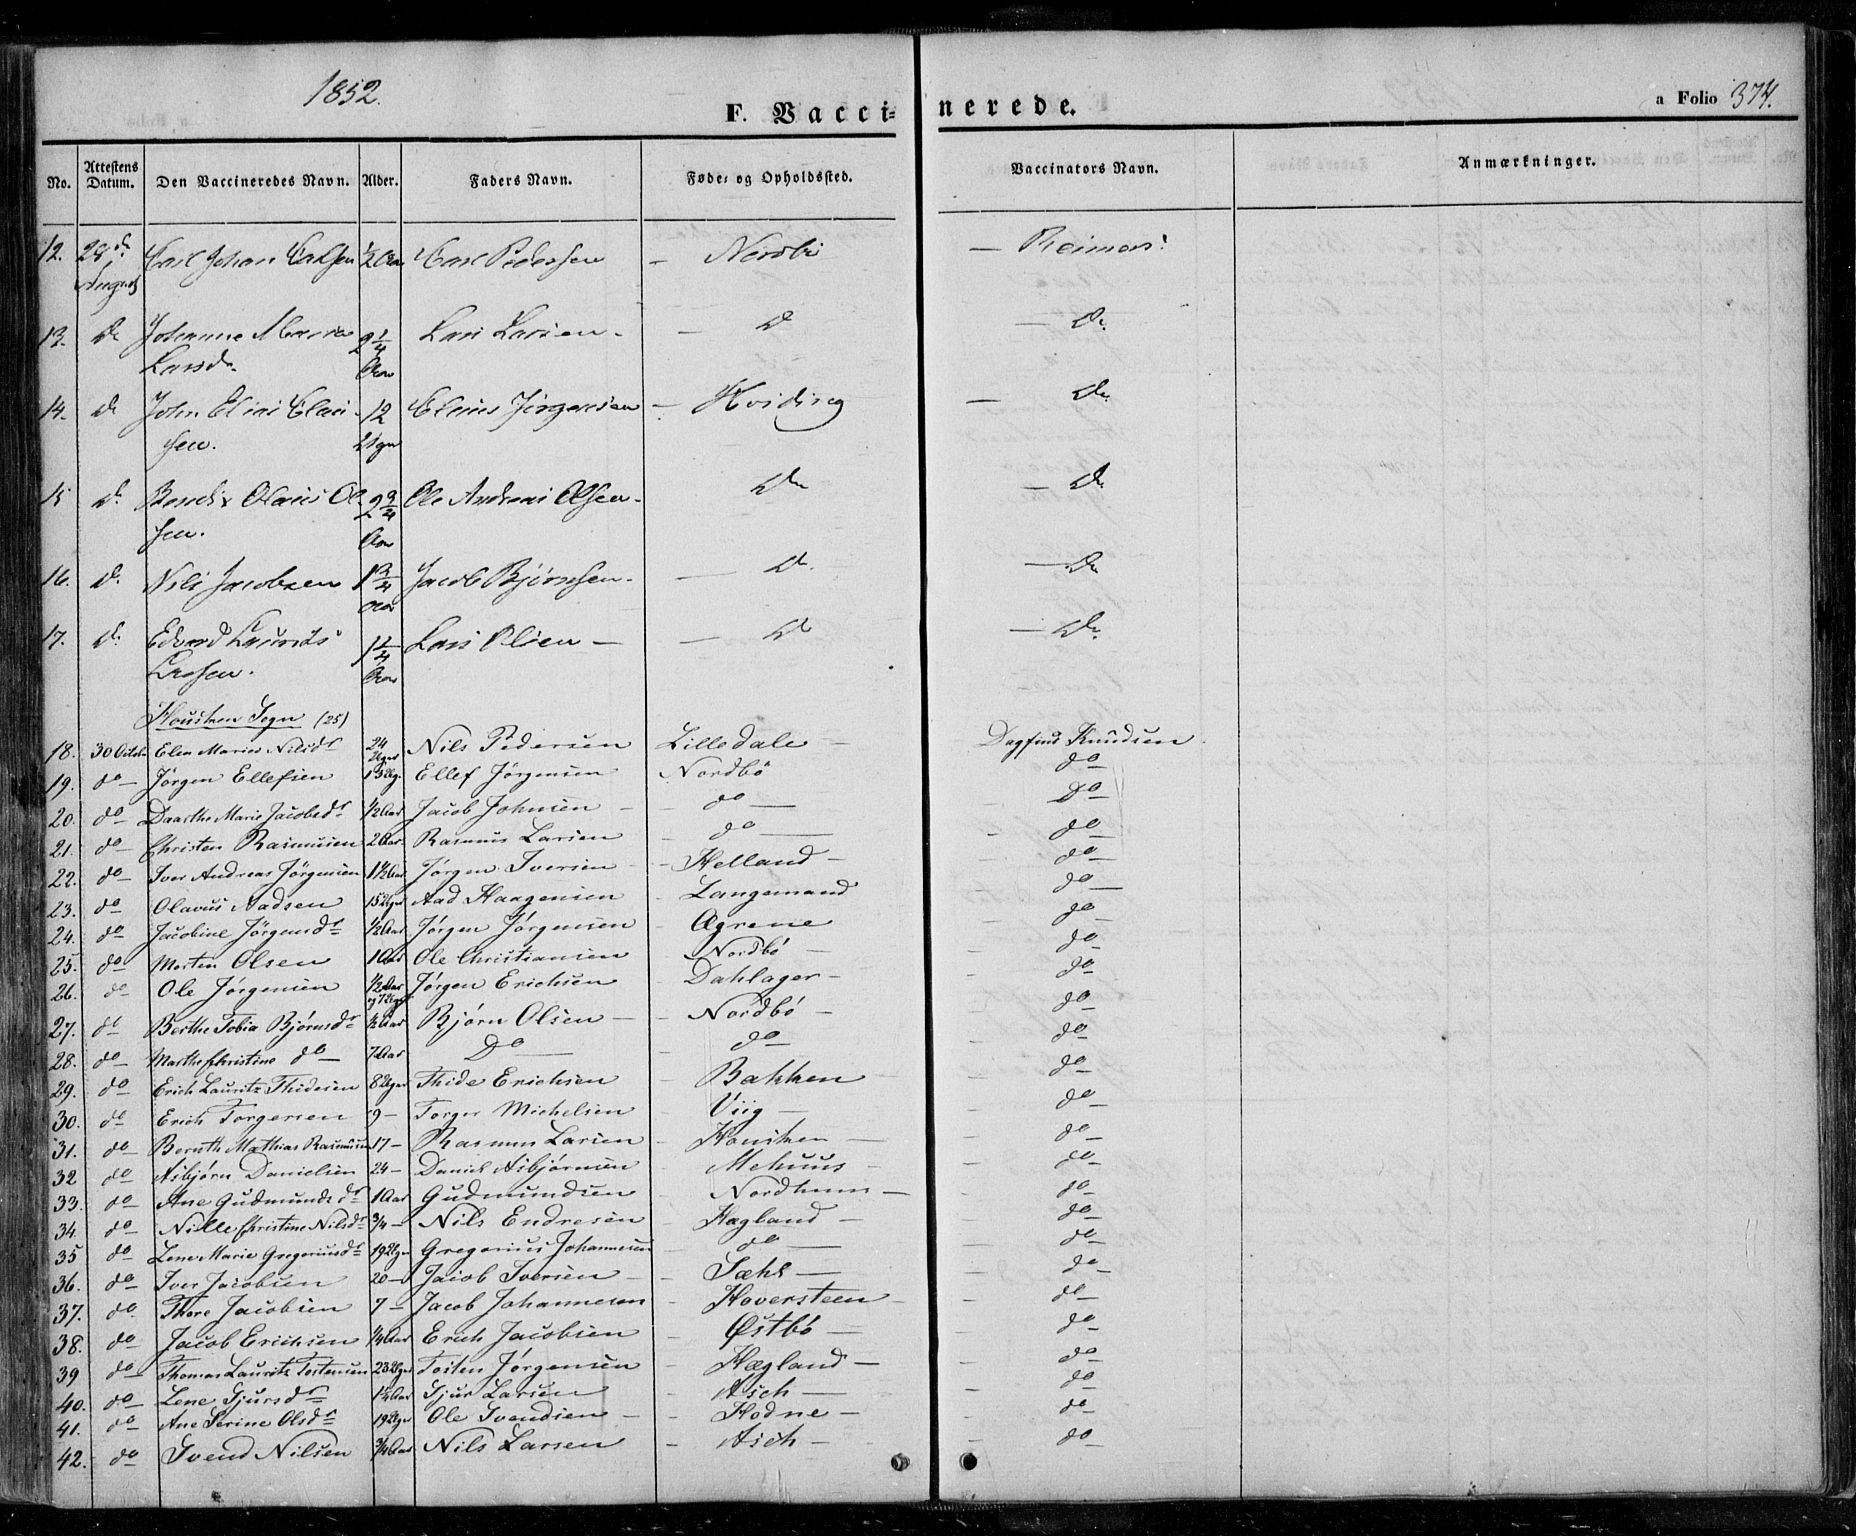 1852.
F. Vaccinerede.
a Folio 374.
No. Attestens Datum. Den Vaccineredes Navn. Alder. Faders Navn. Føde- og Opholdssted. Vaccinators Navn. Anmærkninger.
12. 28d August Carl Johan Carlsen 1/2 Aar Carl Pedersen — Nordbø — Reimers
13. do Johanne Marie Larsdr 2 1/4 Aar Lars Larsen — do — do
14. do John Elias Clausen 12 Uger Claus Jørgensen — Hviding — do
15 do Bendix Olaus Olsen. 2 3/4 Aar Ole Andreas Olsen do — do
16. do Nils Jacobsen 1 3/4 Aar Jacob Bjørnsen — do — do
17. do Edvard Laurits Larsen. 1 1/4 Aar Lars Olsen — do — do
Housken Sogn (25)
18. 30 Octobr Elen Marie Nilsdr 24 Uger Nils Pedersen Lilledale — Dagfind Knudsen
19. do Jørgen Ellefsen 13 Ug. Ellef Jørgensen Nordbø do
20. do Daarthe Marie Jacobsdr 1/2 Aar Jacob Johnsen — do — Do
21. do Christen Rasmusen 2 Aar Rasmus Larsen — do — do
22. do Iver Andreas Jørgensen 1 1/2 Aar Jørgen Iversen — Helland — do
23. do Olavus Aadsen 15 Uger Aad Haagensen Langemand do
24. do Jacobine Jørgensdr 1/2 Aar Jørgen Jørgensen Øgrene do
25. do Morten Olsen 1 Aar Ole Christiansen Nordbø do
26. do Ole Jørgensen 1/2 Aar og 7 Uger Jørgen Erichsen Dahlager — do
27. do Berthe Tobia Bjørnsdr 1/2 Aar Bjørn Olsen — Nordbø — do
28. do Marthe Christine do 7 Aar Do do do
29. do Erich Lauritz Thidesen 8 Uger Thide Erichsen Bakken do
30. do Erich Torgersen 9 — Torger Michelsen Viig — do
31. do Bernth Mathias Rasmusen 17 — Rasmus Larsen Housken do
32 do Asbjørn Danielsen 24 — Daniel Asbjørnsen Mehuus do
33. do Ane Gudmundsdr 1 Aar Gudmundsen Nordhuus — do
34. do Nille Christine Nilsdr 3/4 — Nils Endresen Hægland — do
35 do Lene Marie Gregoriusdr 19 Uger Gregorius Johannesen do — do
36. do Iver Jacobsen 20 — Jacob Iversen — Sæhl — do
37. do Thore Jacobsen 7 — Jacob Johannesen Hoversteen do
38. do Jacob Erichsen 1/4 Aar Erich Jacobsen Østbø — do
39 do Thomas Lauritz Tostensen 23 Uger Tosten Jørgensen Hægland — do
40. do Lene Sjursdr 1 1/4 Aar Sjur Larsen Asch — do
41. do Ane Serine Olsdr 19 Uger Ole Svendsen — Hodne — do
42. do Svend Nilsen 3/4 Aar Nils Larsen — Asch — do